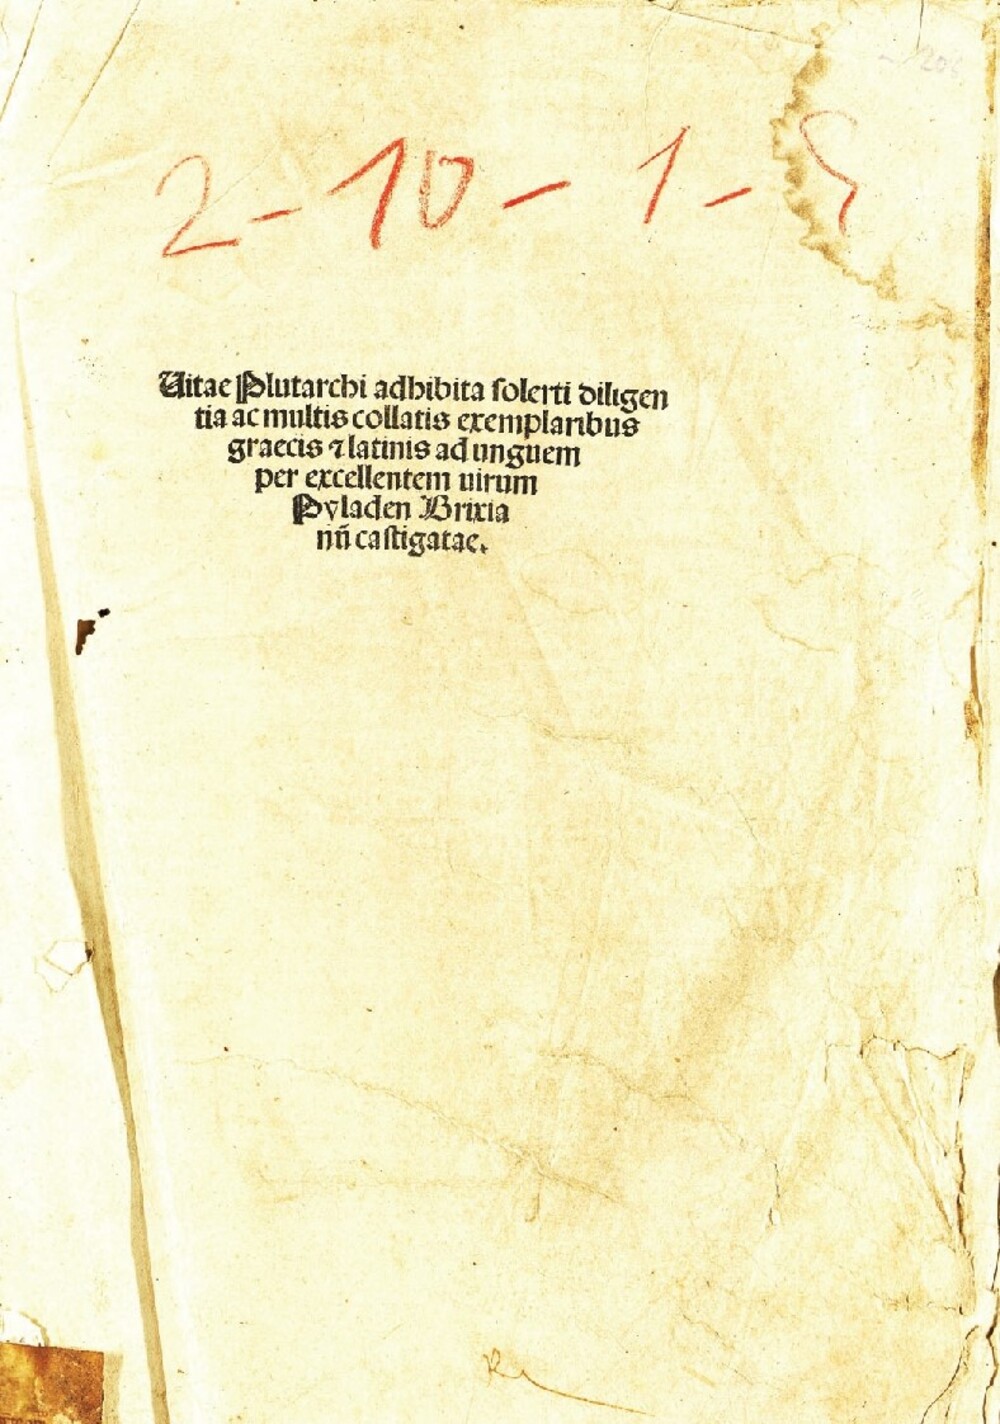 2 - 10 - 1 - 5
Uitae Plutarchi adhibita solerti diligen
tia ac multis collatis exemplaribus
graecis ⁊ latinis ad unguem
per excellentem uirum
Pyladen Brixia
nū castigatae.